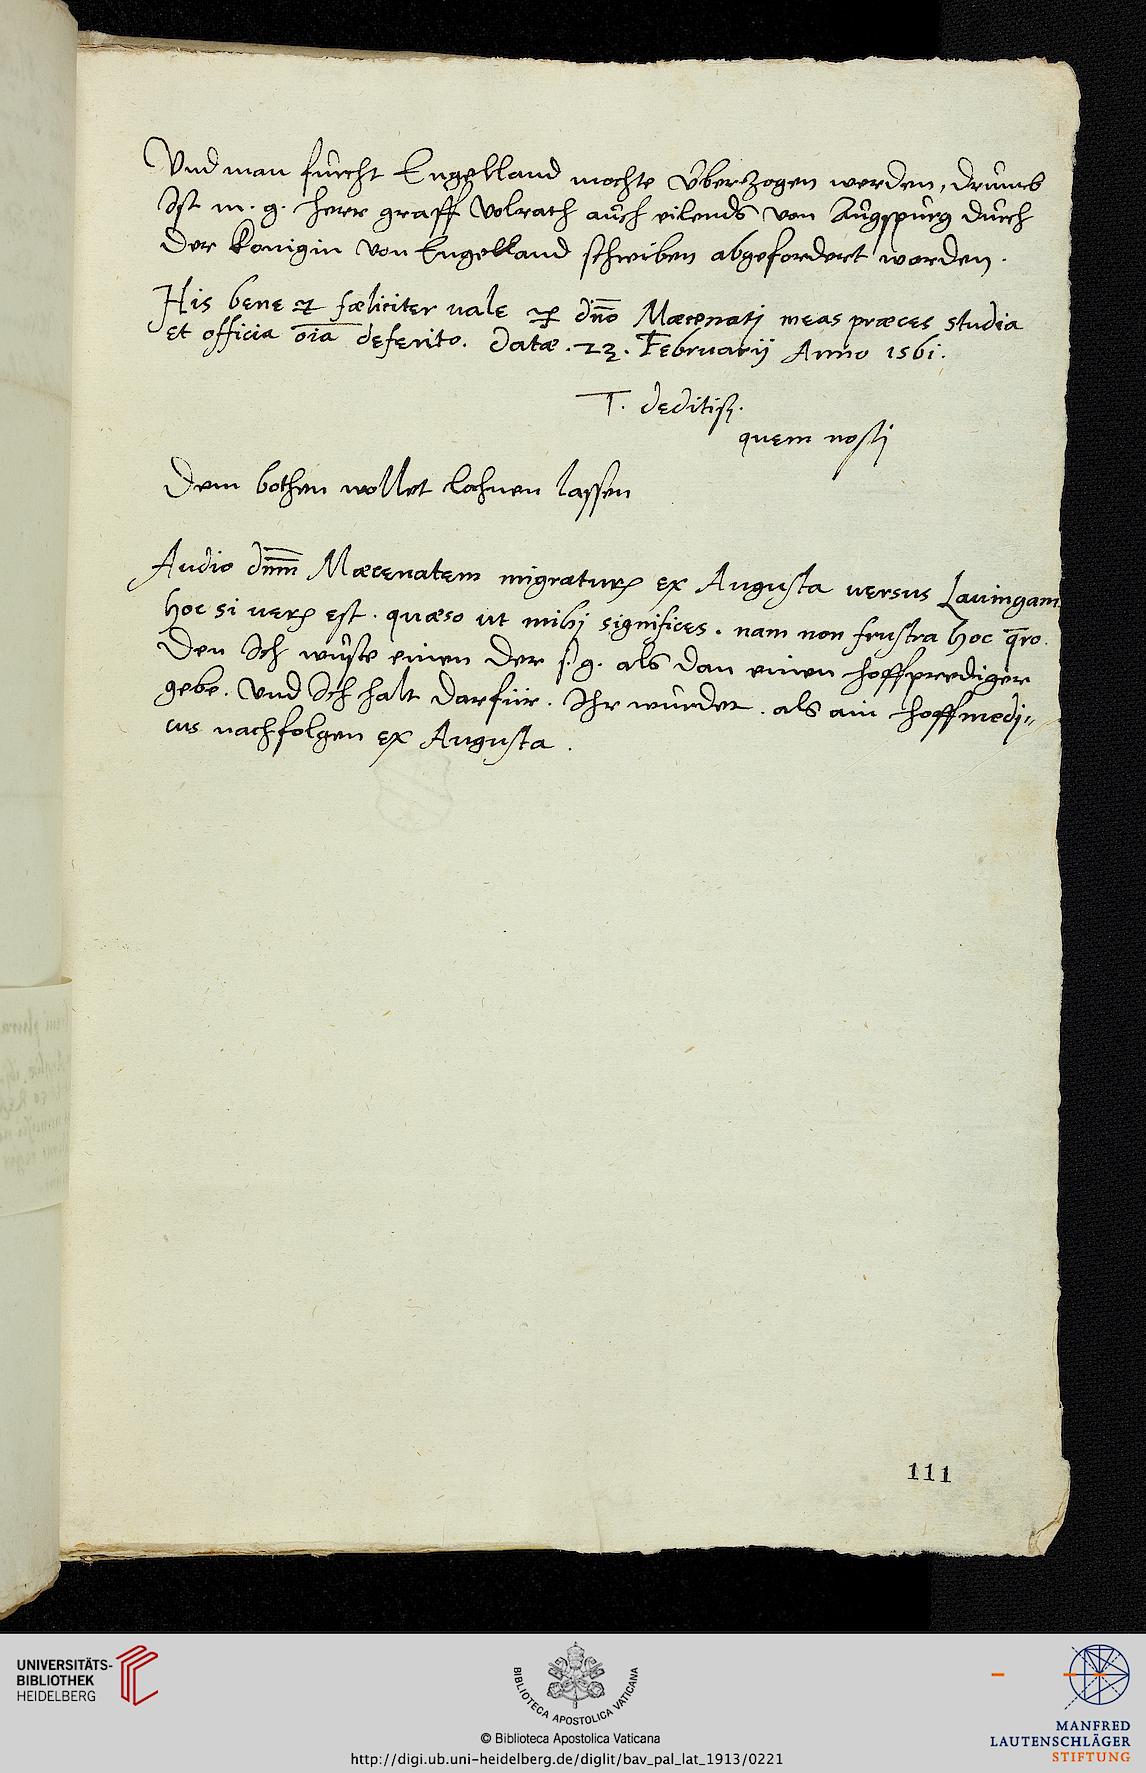 Und man furcht Engelland mochte uberzogen werden, drumb
Ist m. g. herr graff Volrath auch eilends von Augspurg durch
der konigin von Engelland schreiben abgefordert worden.
His bene et fæliciter vale et dn̄o Mæcenati meas præces studia
et officia oīa deferito. Datæ. 23. Februarii Anno 1561.
T. deditiss.
quem nosti
Dem bothen wollet lohnen lassen
Audio dn̄m Mæcenatem migraturꝝ ex Augusta versus Lauingam
hoc si verꝝ est. quæso ut mihi significes. nam non frustra hoc q̄ro.
Den Ich wuste einen der s. g. als dan einen hoffprediger
gebe. Und Ich halt darfür. Ihr wurdet. als ain hoffmedi-
cus nachfolgen ex Augusta.
111
UNIVERSITÄTS-
BIBLIOTHEK
HEIDELBERG
BIBLIOTECA APOSTOLICA VATICANA
© Biblioteca Apostolica Vaticana
http://digi.ub.uni-heidelberg.de/diglit/bav_pal_lat_1913/0221
MANFRED
LAUTENSCHLÄGER
STIFTUNG